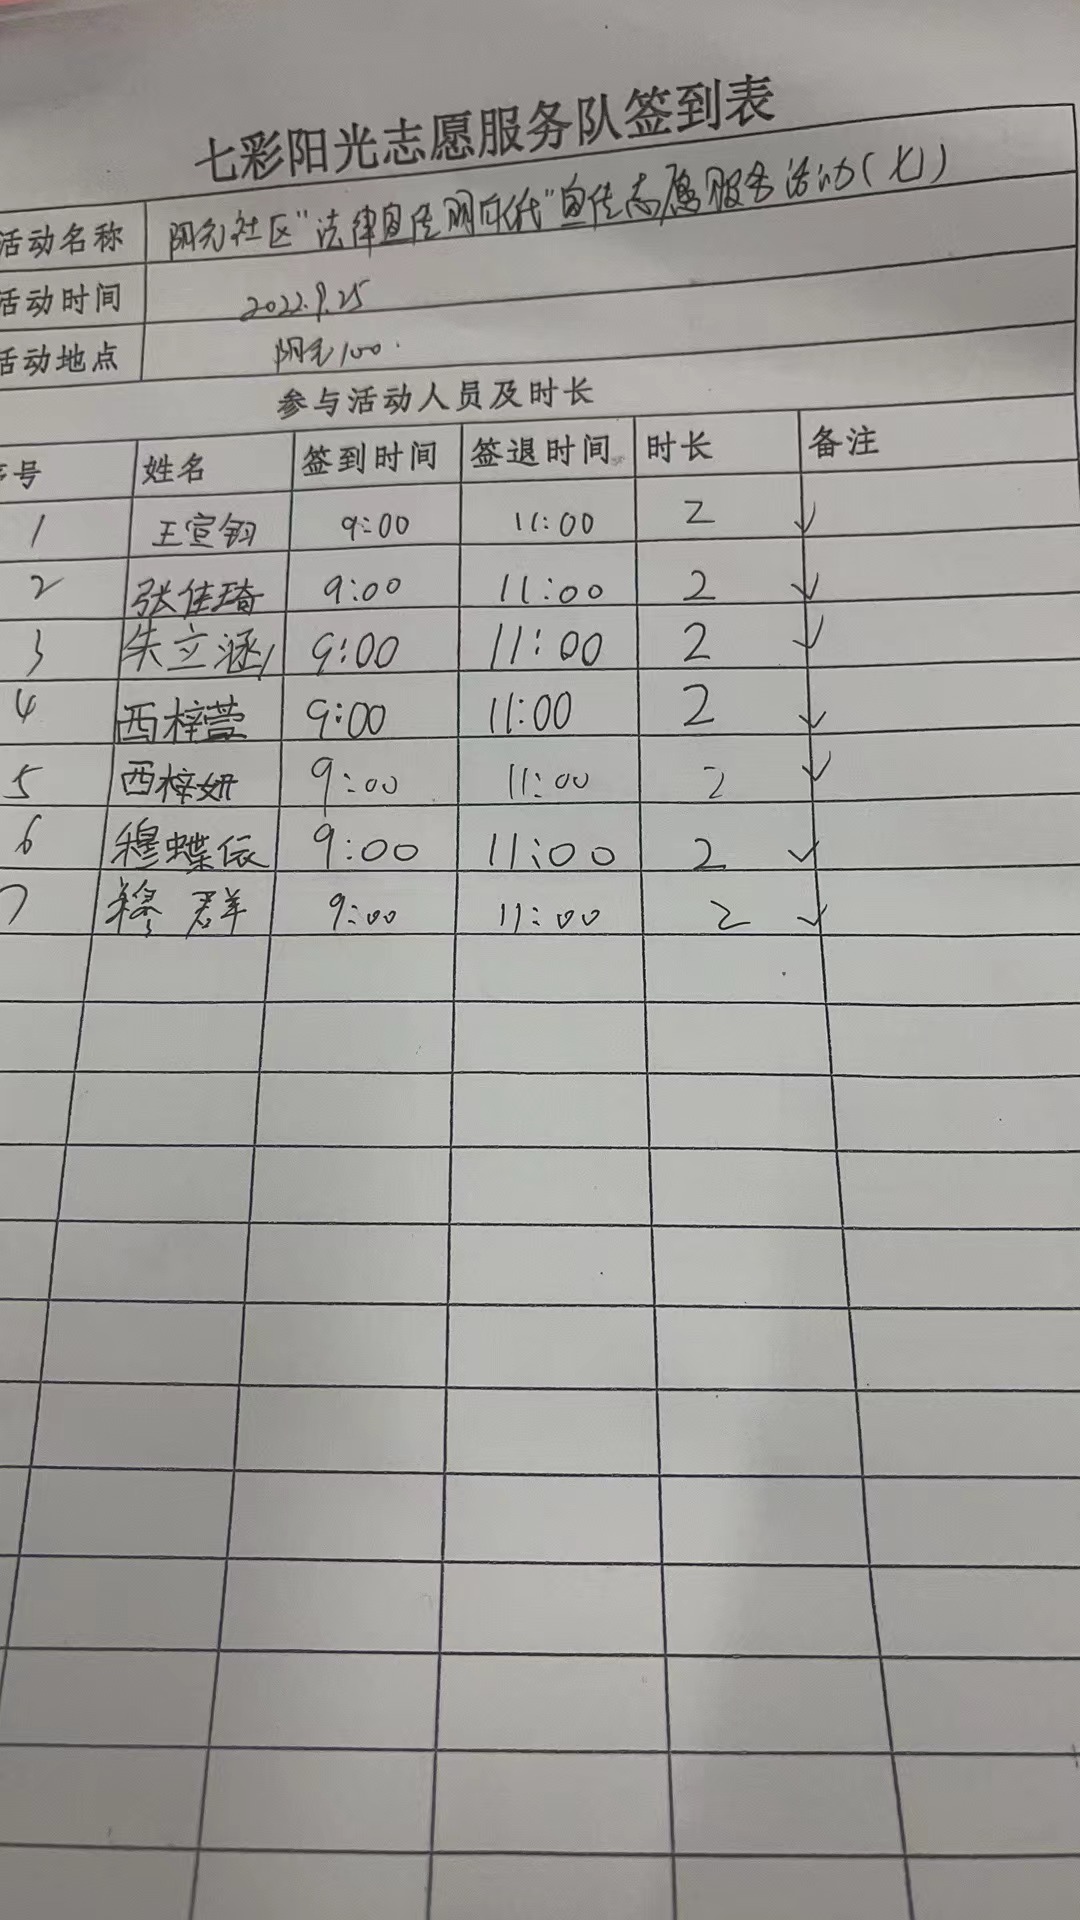 七彩阳光志愿服务队签到表
活动名称 阳光社区"法律宣传 时代"宣传志愿服务活动(七)
活动时间 2022.9.25
活动地点 阳光100.
参与活动人员及时长
序号 姓名 签到时间 签退时间 时长 备注
1 王宣钧 9:00 11:00 2 ✓
2 张佳琦 9:00 11:00 2 ✓
3 朱立涵 9:00 11:00 2 ✓
4 西梓萱 9:00 11:00 2 ✓
5 西梓妍 9:00 11:00 2 ✓
6 穆蝶依 9:00 11:00 2 ✓
7 穆群 9:00 11:00 2 ✓